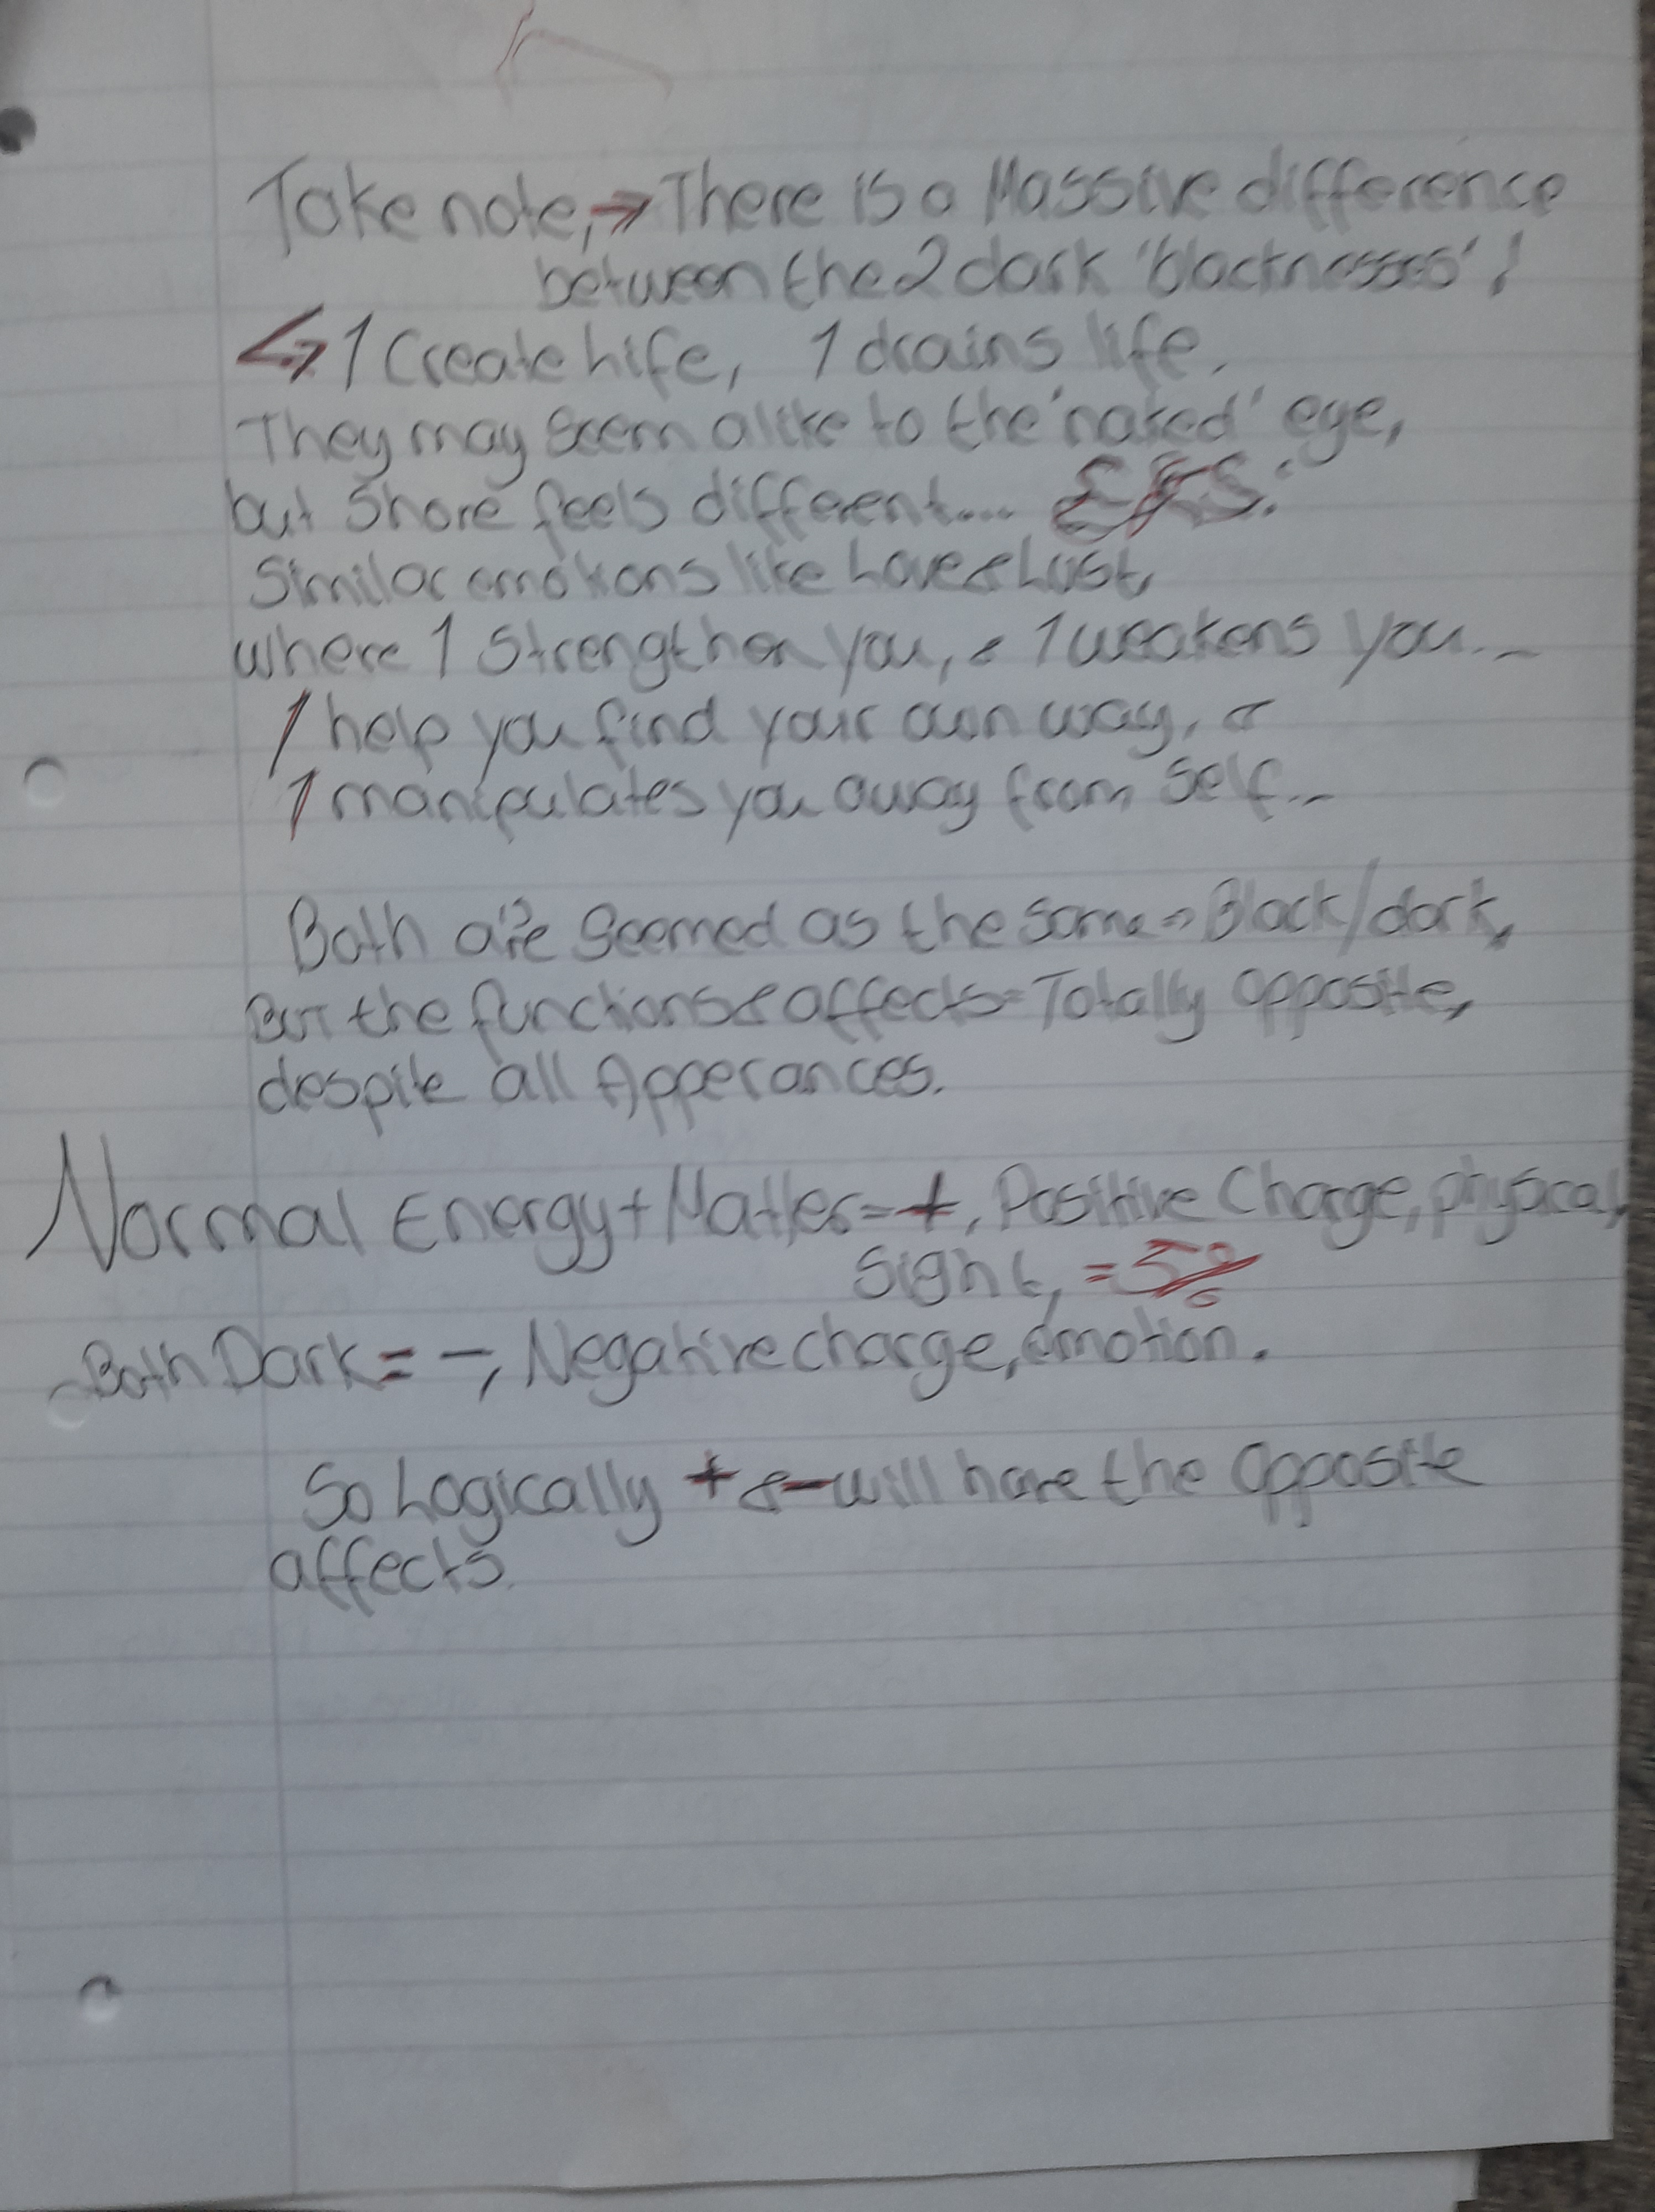 Take note, → There is a Massive difference
between the 2 dark 'blacknesses' !
↳ 1 Create Life, 1 drains life.
They may seem alike to the 'naked' eye,
but Shore feels different....
Similar emotions like Love & Lust,
where 1 Strengthen you, & 1 weakens you...
1 help you find your own way, &
1 manipulates you away from Self...
Both are seemed as the same = Black/dark,
BUT the functions & affects = Totally opposite,
despite all Apperances.
Normal Energy + Matter = +, Positive Charge, physical,
Sight, = 5%
Both Dark = -, Negative charge, emotion.
So Logically + & - will have the Opposite
affects.